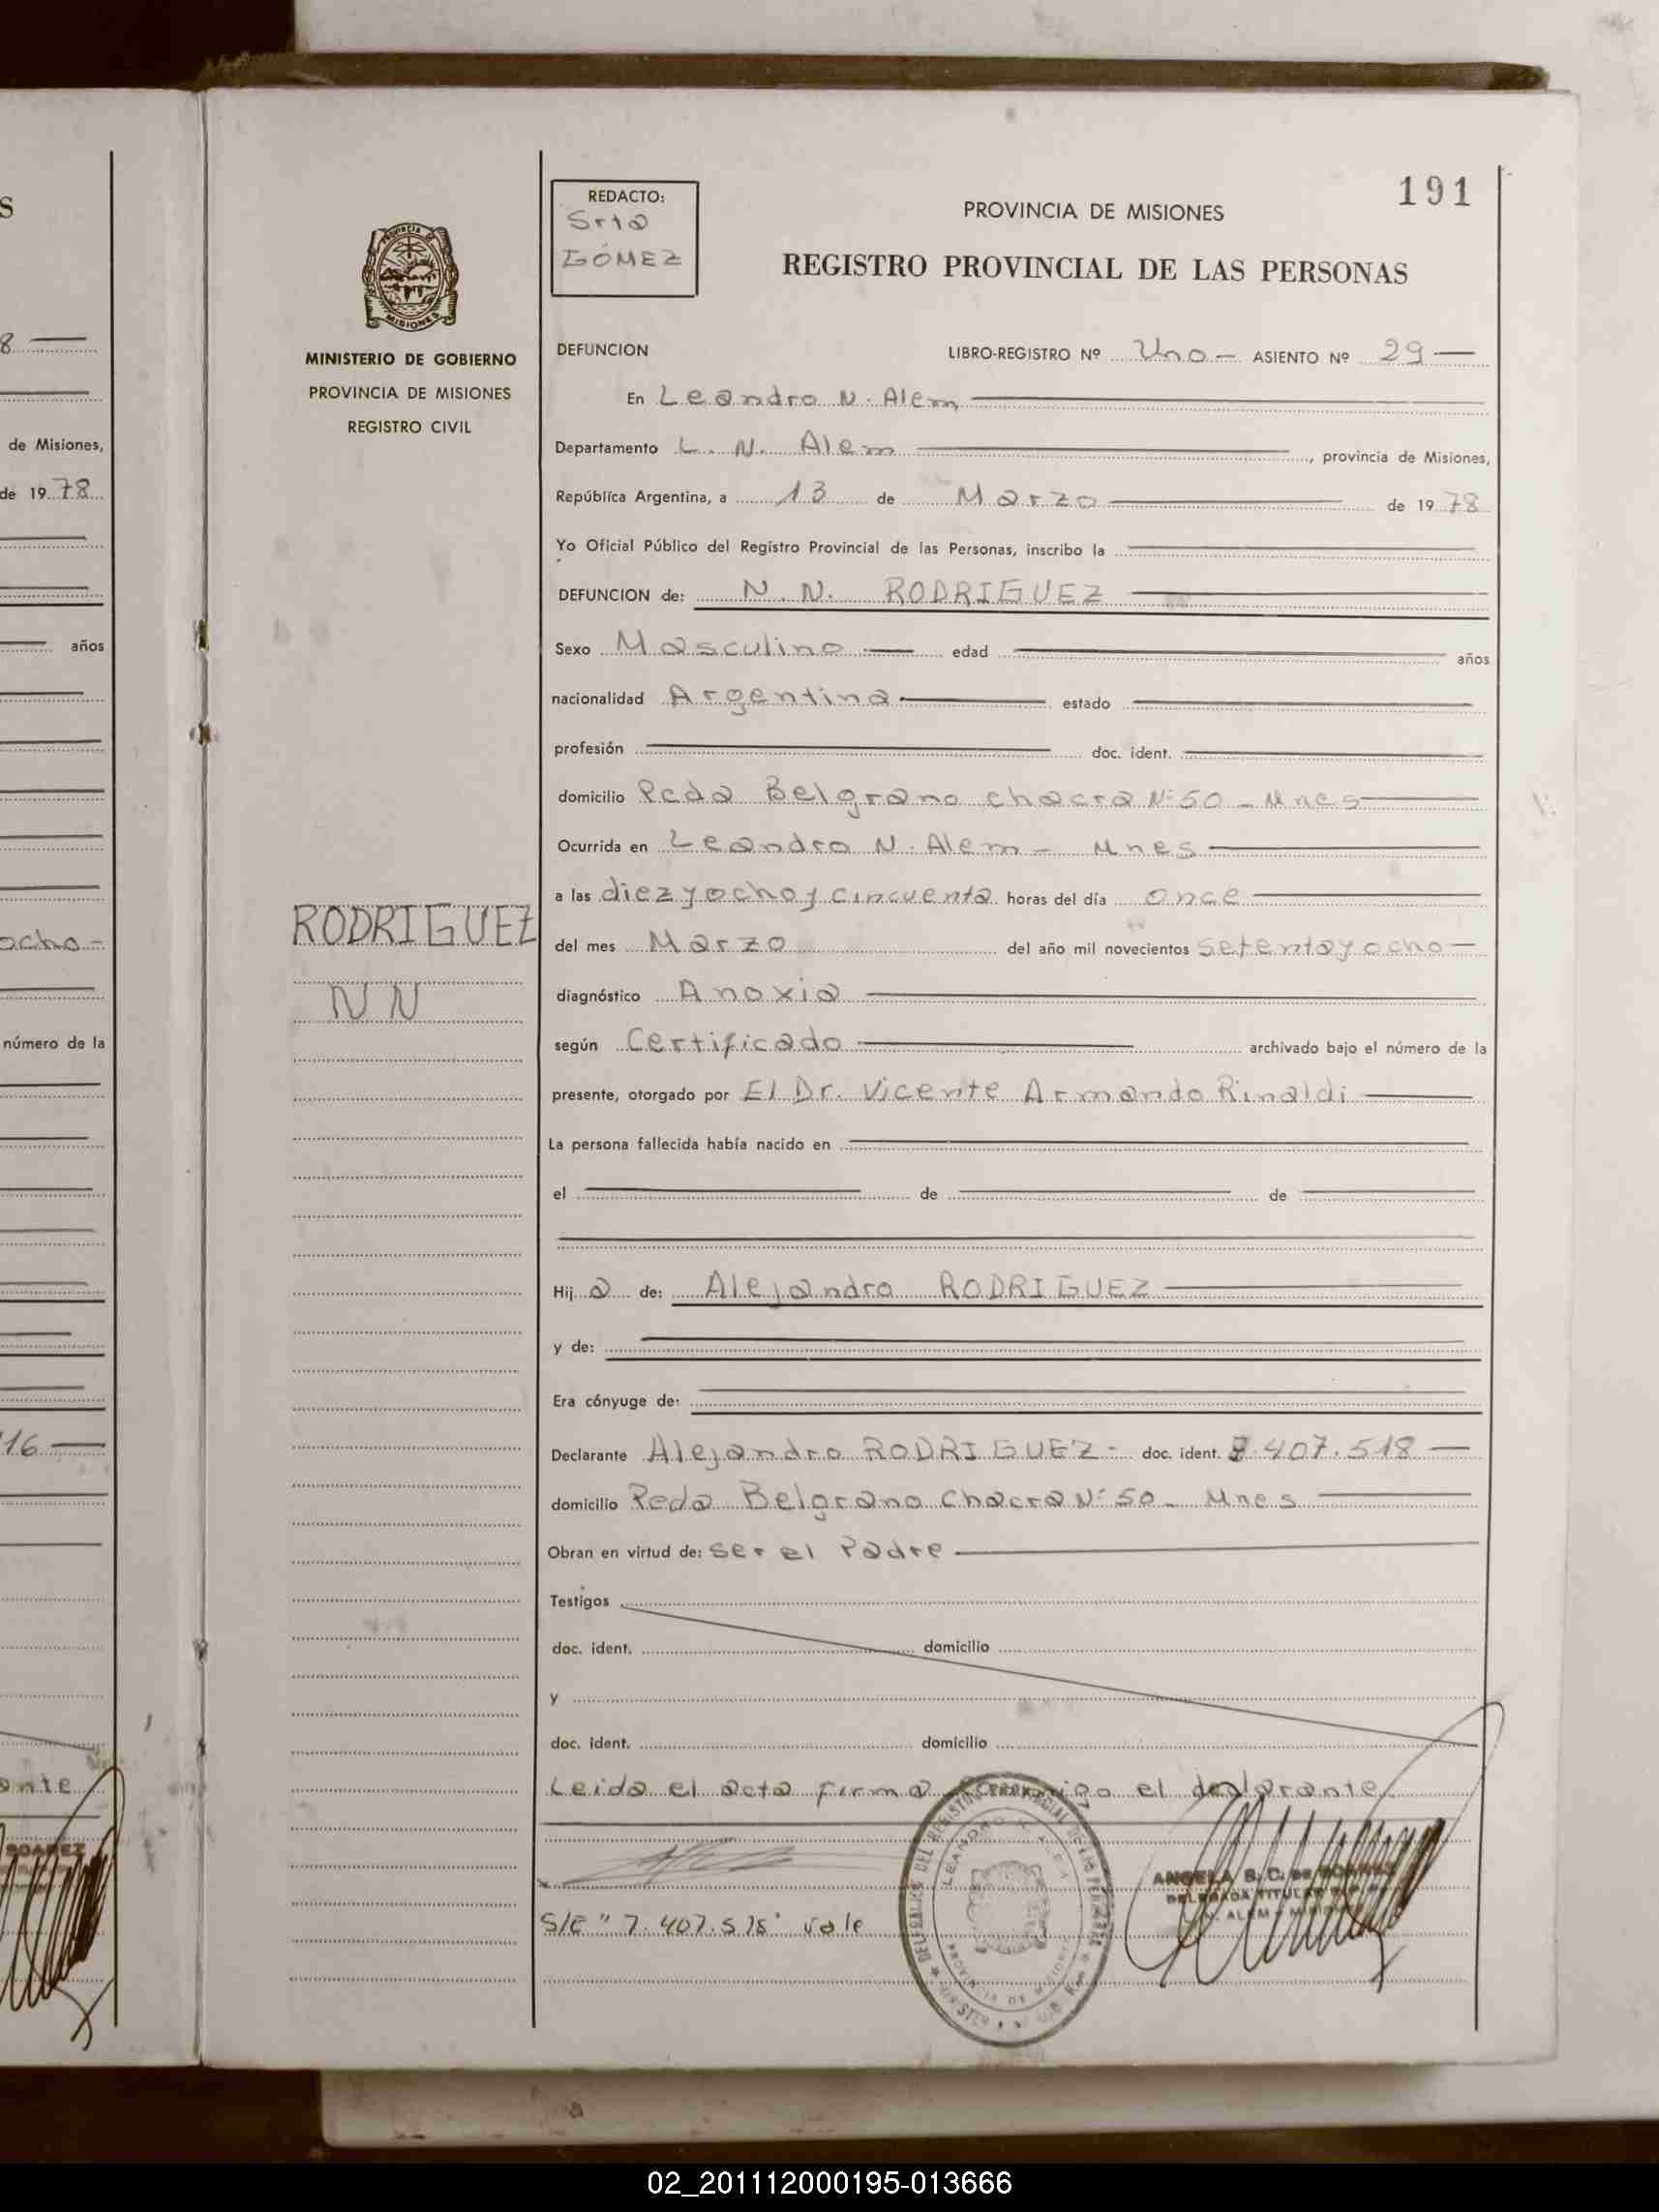 S
8
de Misiones,
de 19 78
años
ocho -
número de la
16
ante
SOAREZ
PROVINCIA DE
MISIONES
MINISTERIO DE GOBIERNO
PROVINCIA DE MISIONES
REGISTRO CIVIL
RODRIGUEZ
N N
REDACTO:
Srta
GÓMEZ
191
PROVINCIA DE MISIONES
REGISTRO PROVINCIAL DE LAS PERSONAS
DEFUNCION LIBRO-REGISTRO Nº Uno - ASIENTO Nº 29
En Leandro N. Alem
Departamento L. N. Alem , provincia de Misiones,
República Argentina, a 13 de Marzo de 19 78
Yo Oficial Público del Registro Provincial de las Personas, inscribo la
DEFUNCION de: N. N. RODRIGUEZ
Sexo Masculino edad años
nacionalidad Argentina estado
profesión doc. ident.
domicilio Pcda Belgrano chacra Nº 50 - Mnes
Ocurrida en Leandro N. Alem - Mnes
a las diez y ocho y cincuenta horas del día once
del mes Marzo del año mil novecientos setenta y ocho
diagnóstico Anoxia
según Certificado archivado bajo el número de la
presente, otorgado por El Dr. Vicente Armando Rinaldi
La persona fallecida había nacido en
el de de
Hij a de: Alejandro RODRIGUEZ
y de:
Era cónyuge de:
Declarante Alejandro RODRIGUEZ - doc. ident. 7.407.518
domicilio Pcda Belgrano Chacra Nº 50 - Mnes
Obran en virtud de: ser el Padre
Testigos
doc. ident. domicilio
y
doc. ident. domicilio
Leida el acta firma conmigo el declarante.
LEANDRO N. ALEM
PROVINCIA DE MISIONES
ANGELA B. C. DE
DELEGADA TITULAR
N. ALEM - MISIONES
S/E "7.407.518" vale
02_201112000195-013666